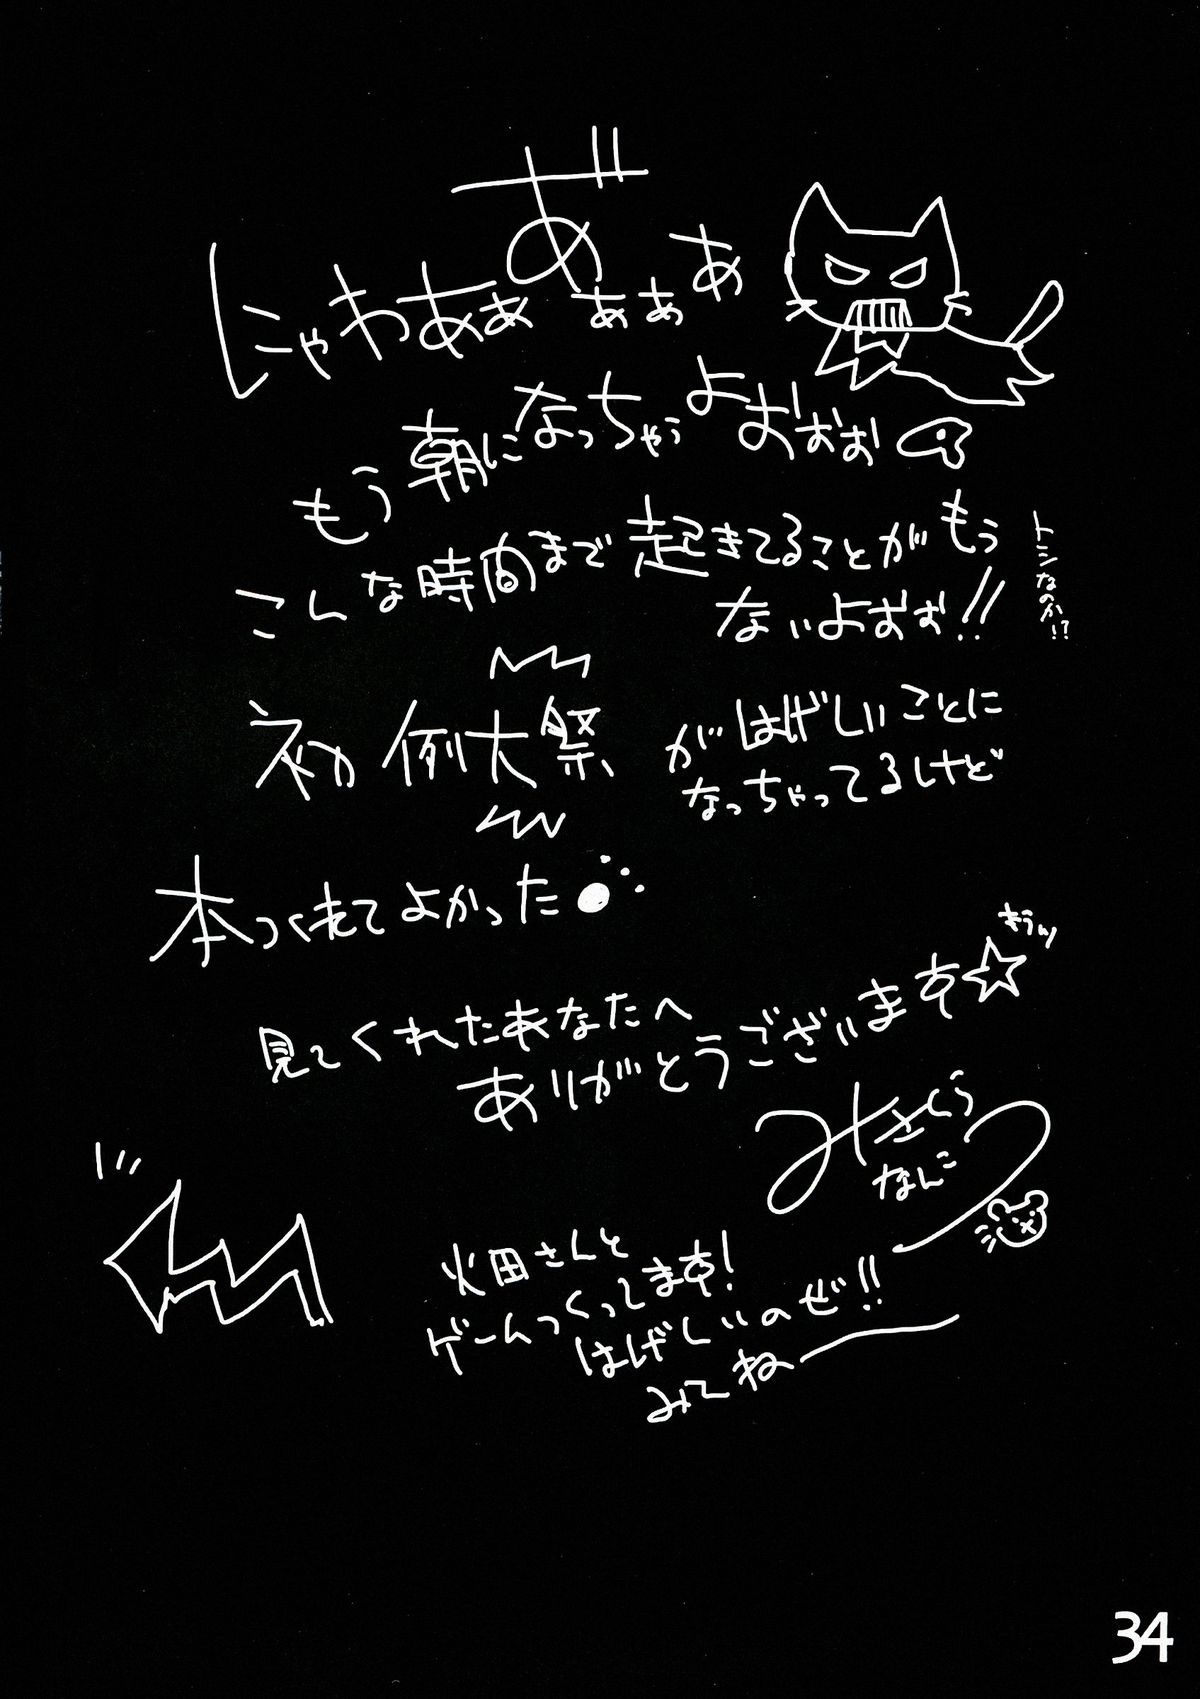 にゃわあぁぁあ゛ぁぁぁ
もう朝になっちゃうよおぉぉぉ
こんな時間まで起きてることがもう
ないよおぉぉ!!
トシなのか!?
初例大祭がはげしいことに
なっちゃってるけど
本つくれてよかった
見てくれたあなたへ
ありがとうございます☆
きらん
みさくら
なんこつ
火田さんと
ゲームつくってます!
はげしいのぜ!!
みてねー
34